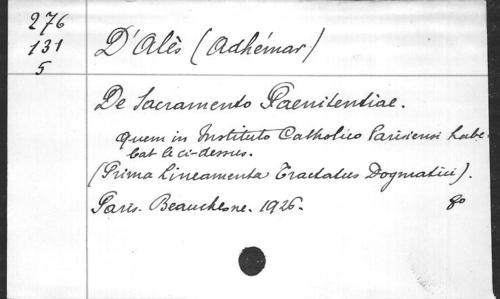 276
131
5
D'Alès (Adhémar)
De Sacramento Paenitentiae.
quem in Instituto Catholico Parisiensi habe-
bat le ci-dessus.
(Prima Lineamenta Tractatus Dogmatici).
Paris. Beauchesne. 1926. 8o